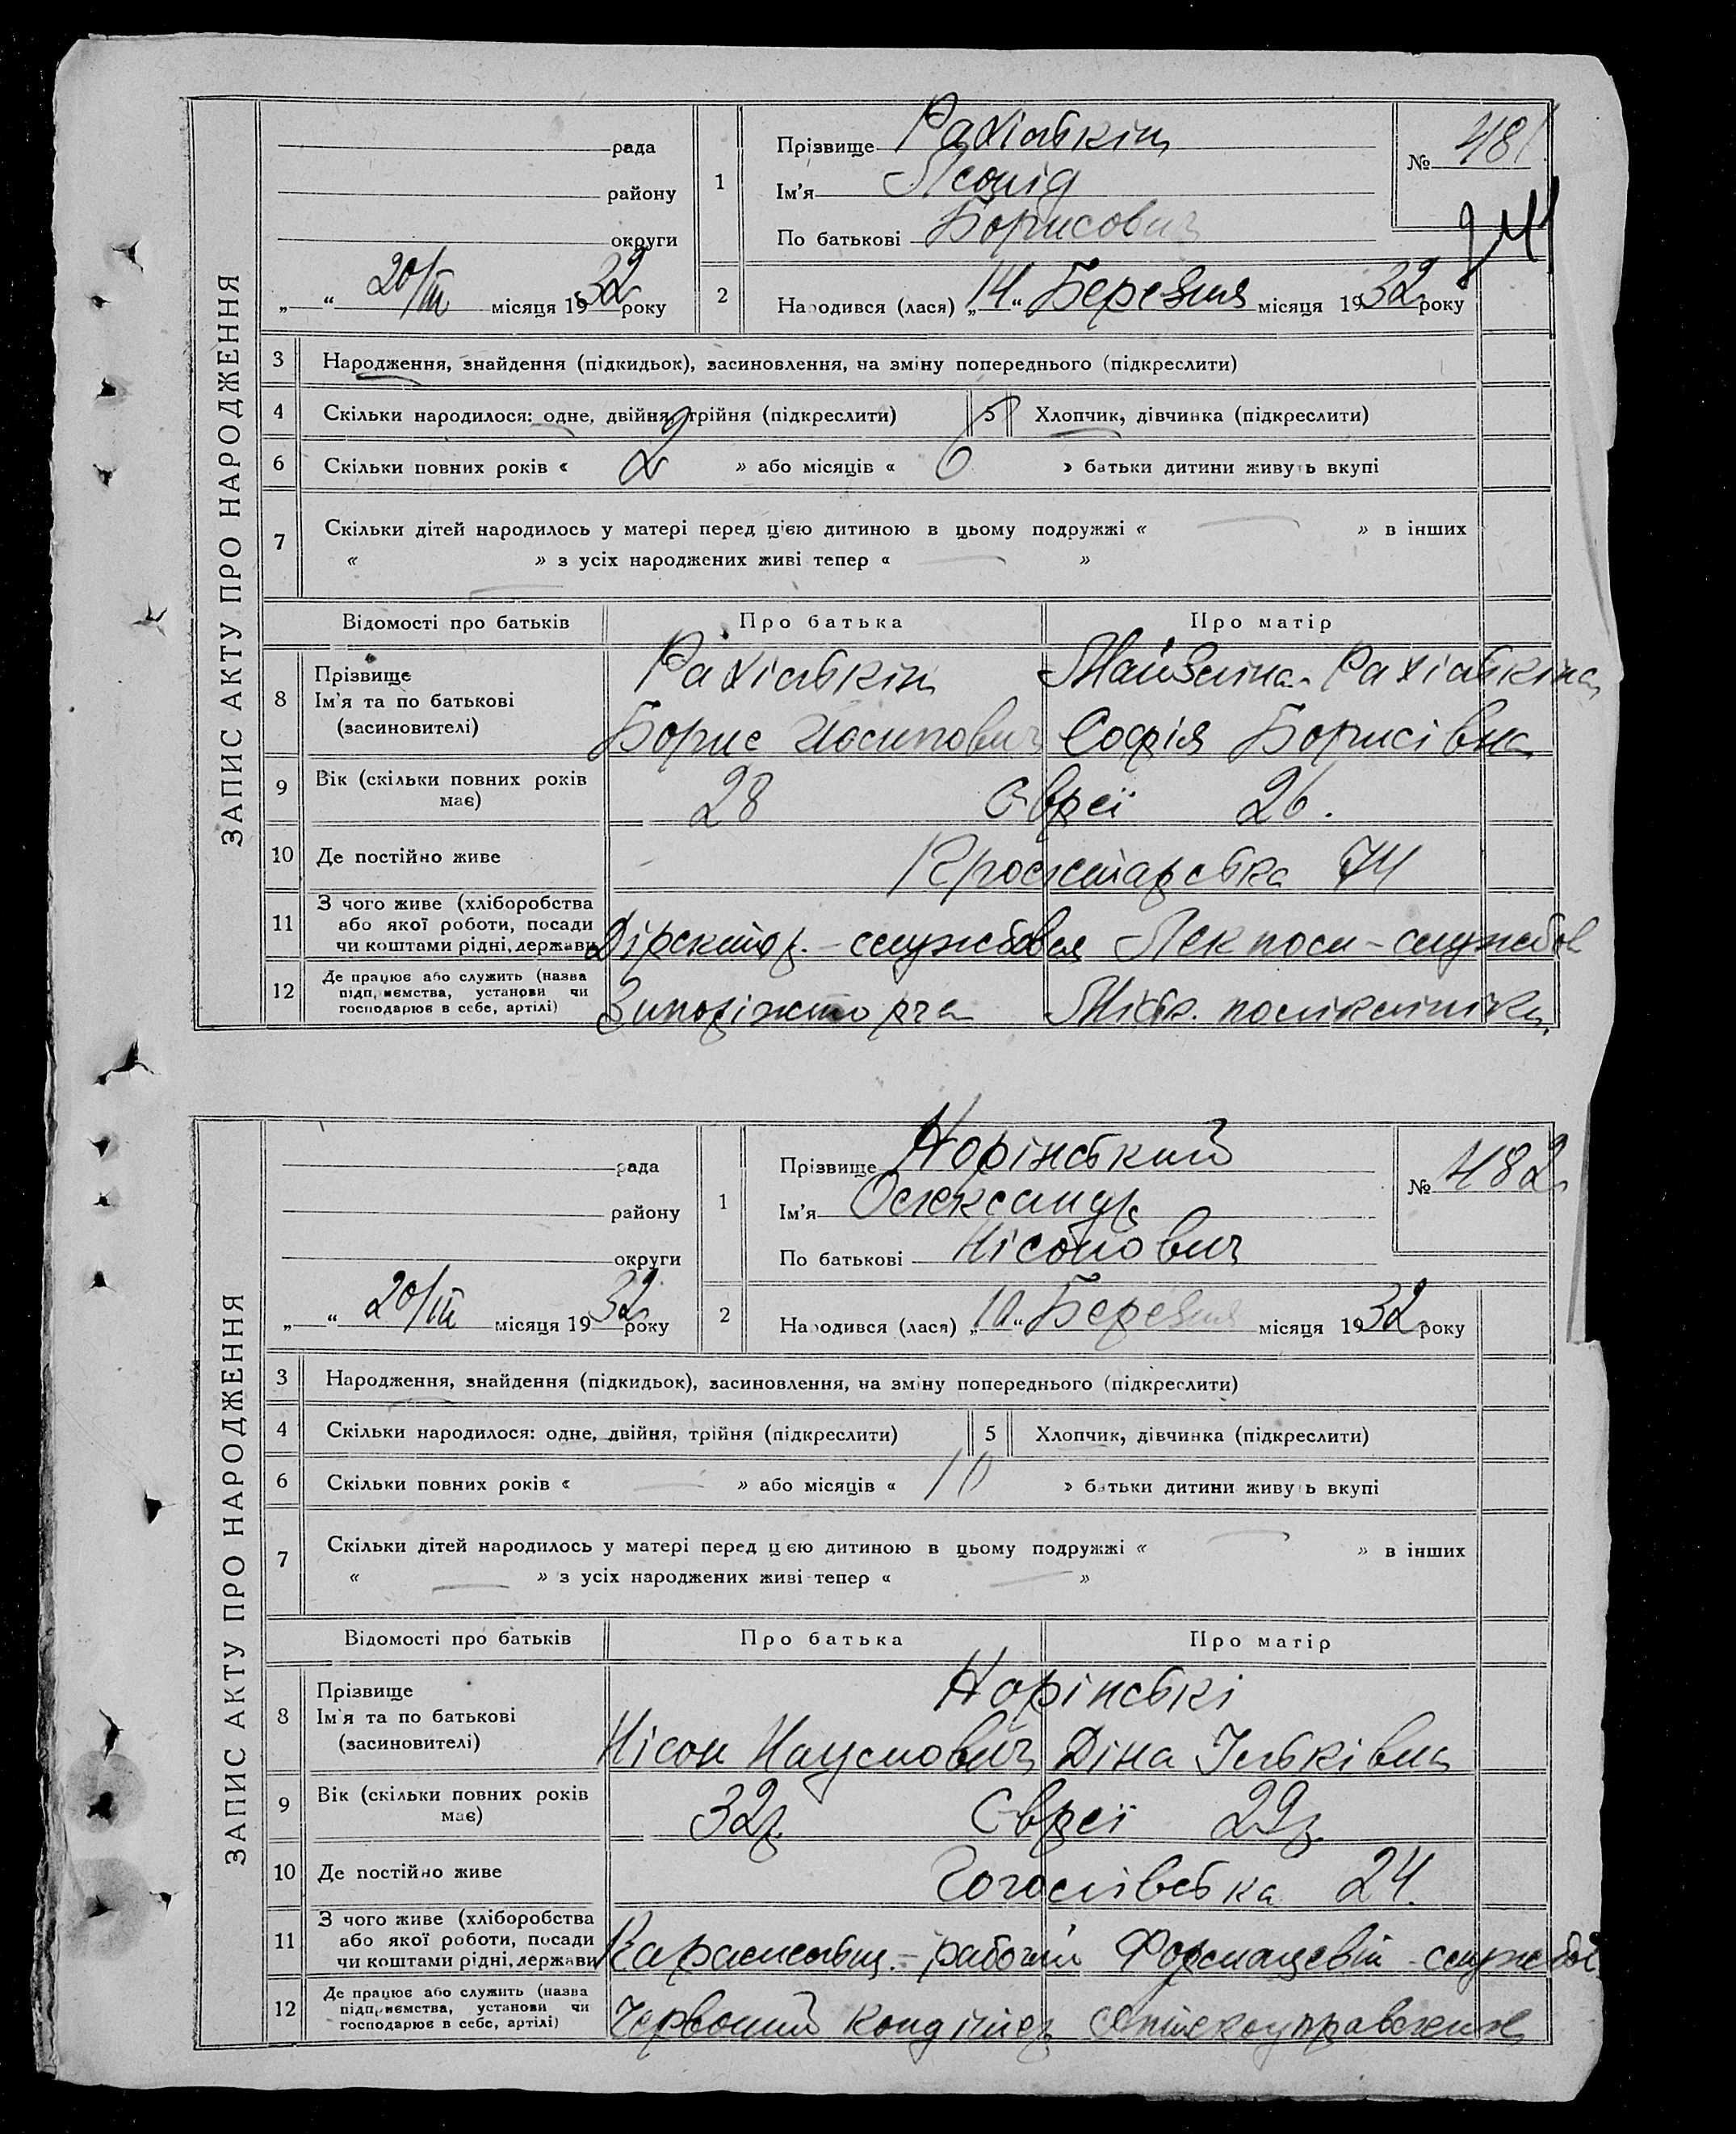 ЗАПИС АКТУ ПРО НАРОДЖЕННЯ
рада
району
округи
„ “ 20/III місяця 1932 року
1
Прізвище Рахількін
Ім'я Леонід
По батькові Борисович
№ 481
2
Народився (лася) „14“ Березня місяця 1932 року
3 Народження, знайдення (підкидьок), засиновлення, на зміну попереднього (підкреслити)
4 Скільки народилося: одне, двійня, трійня (підкреслити) 5 Хлопчик, дівчинка (підкреслити)
6 Скільки повних років « 2 » або місяців « 6 » батьки дитини живуть вкупі
7 Скільки дітей народилось у матері перед цією дитиною в цьому подружжі « — » в інших
« — » з усіх народжених живі тепер « — »
Відомості про батьків Про батька Про матір
8 Прізвище
Ім'я та по батькові
(засиновителі)
Рахількін
Борис Йосипович
Рахількіна
Софія Борисівна
9 Вік (скільки повних років має) 28 Євреї 26.
10 Де постійно живе 74
11 З чого живе (хліборобства або якої роботи, посади чи коштами рідні, держави)
Діректор. - службовец - службов
12 Де працює або служить (назва підприємства, установи чи господарює в себе, артілі)
поликлініка.
ЗАПИС АКТУ ПРО НАРОДЖЕННЯ
рада
району
округи
„ “ 20/III місяця 1932 року
1
Прізвище Норінський
Ім'я Олександр
По батькові Нісонович
№ 482
2
Народився (лася) „10“ Березня місяця 1932 року
3 Народження, знайдення (підкидьок), засиновлення, на зміну попереднього (підкреслити)
4 Скільки народилося: одне, двійня, трійня (підкреслити) 5 Хлопчик, дівчинка (підкреслити)
6 Скільки повних років « — » або місяців « 10 » батьки дитини живуть вкупі
7 Скільки дітей народилось у матері перед цією дитиною в цьому подружжі « — » в інших
« — » з усіх народжених живі тепер « — »
Відомості про батьків Про батька Про матір
8 Прізвище
Ім'я та по батькові
(засиновителі)
Норінські
Нісон Наумович Діна Ільківна
9 Вік (скільки повних років має) 32р. Євреї 29р.
10 Де постійно живе Гоголівська 24.
11 З чого живе (хліборобства або якої роботи, посади чи коштами рідні, держави)
Карамельщ. - рабочий Формацевт - службов
12 Де працює або служить (назва підприємства, установи чи господарює в себе, артілі)
Червоний кондітер Аптекоуправління